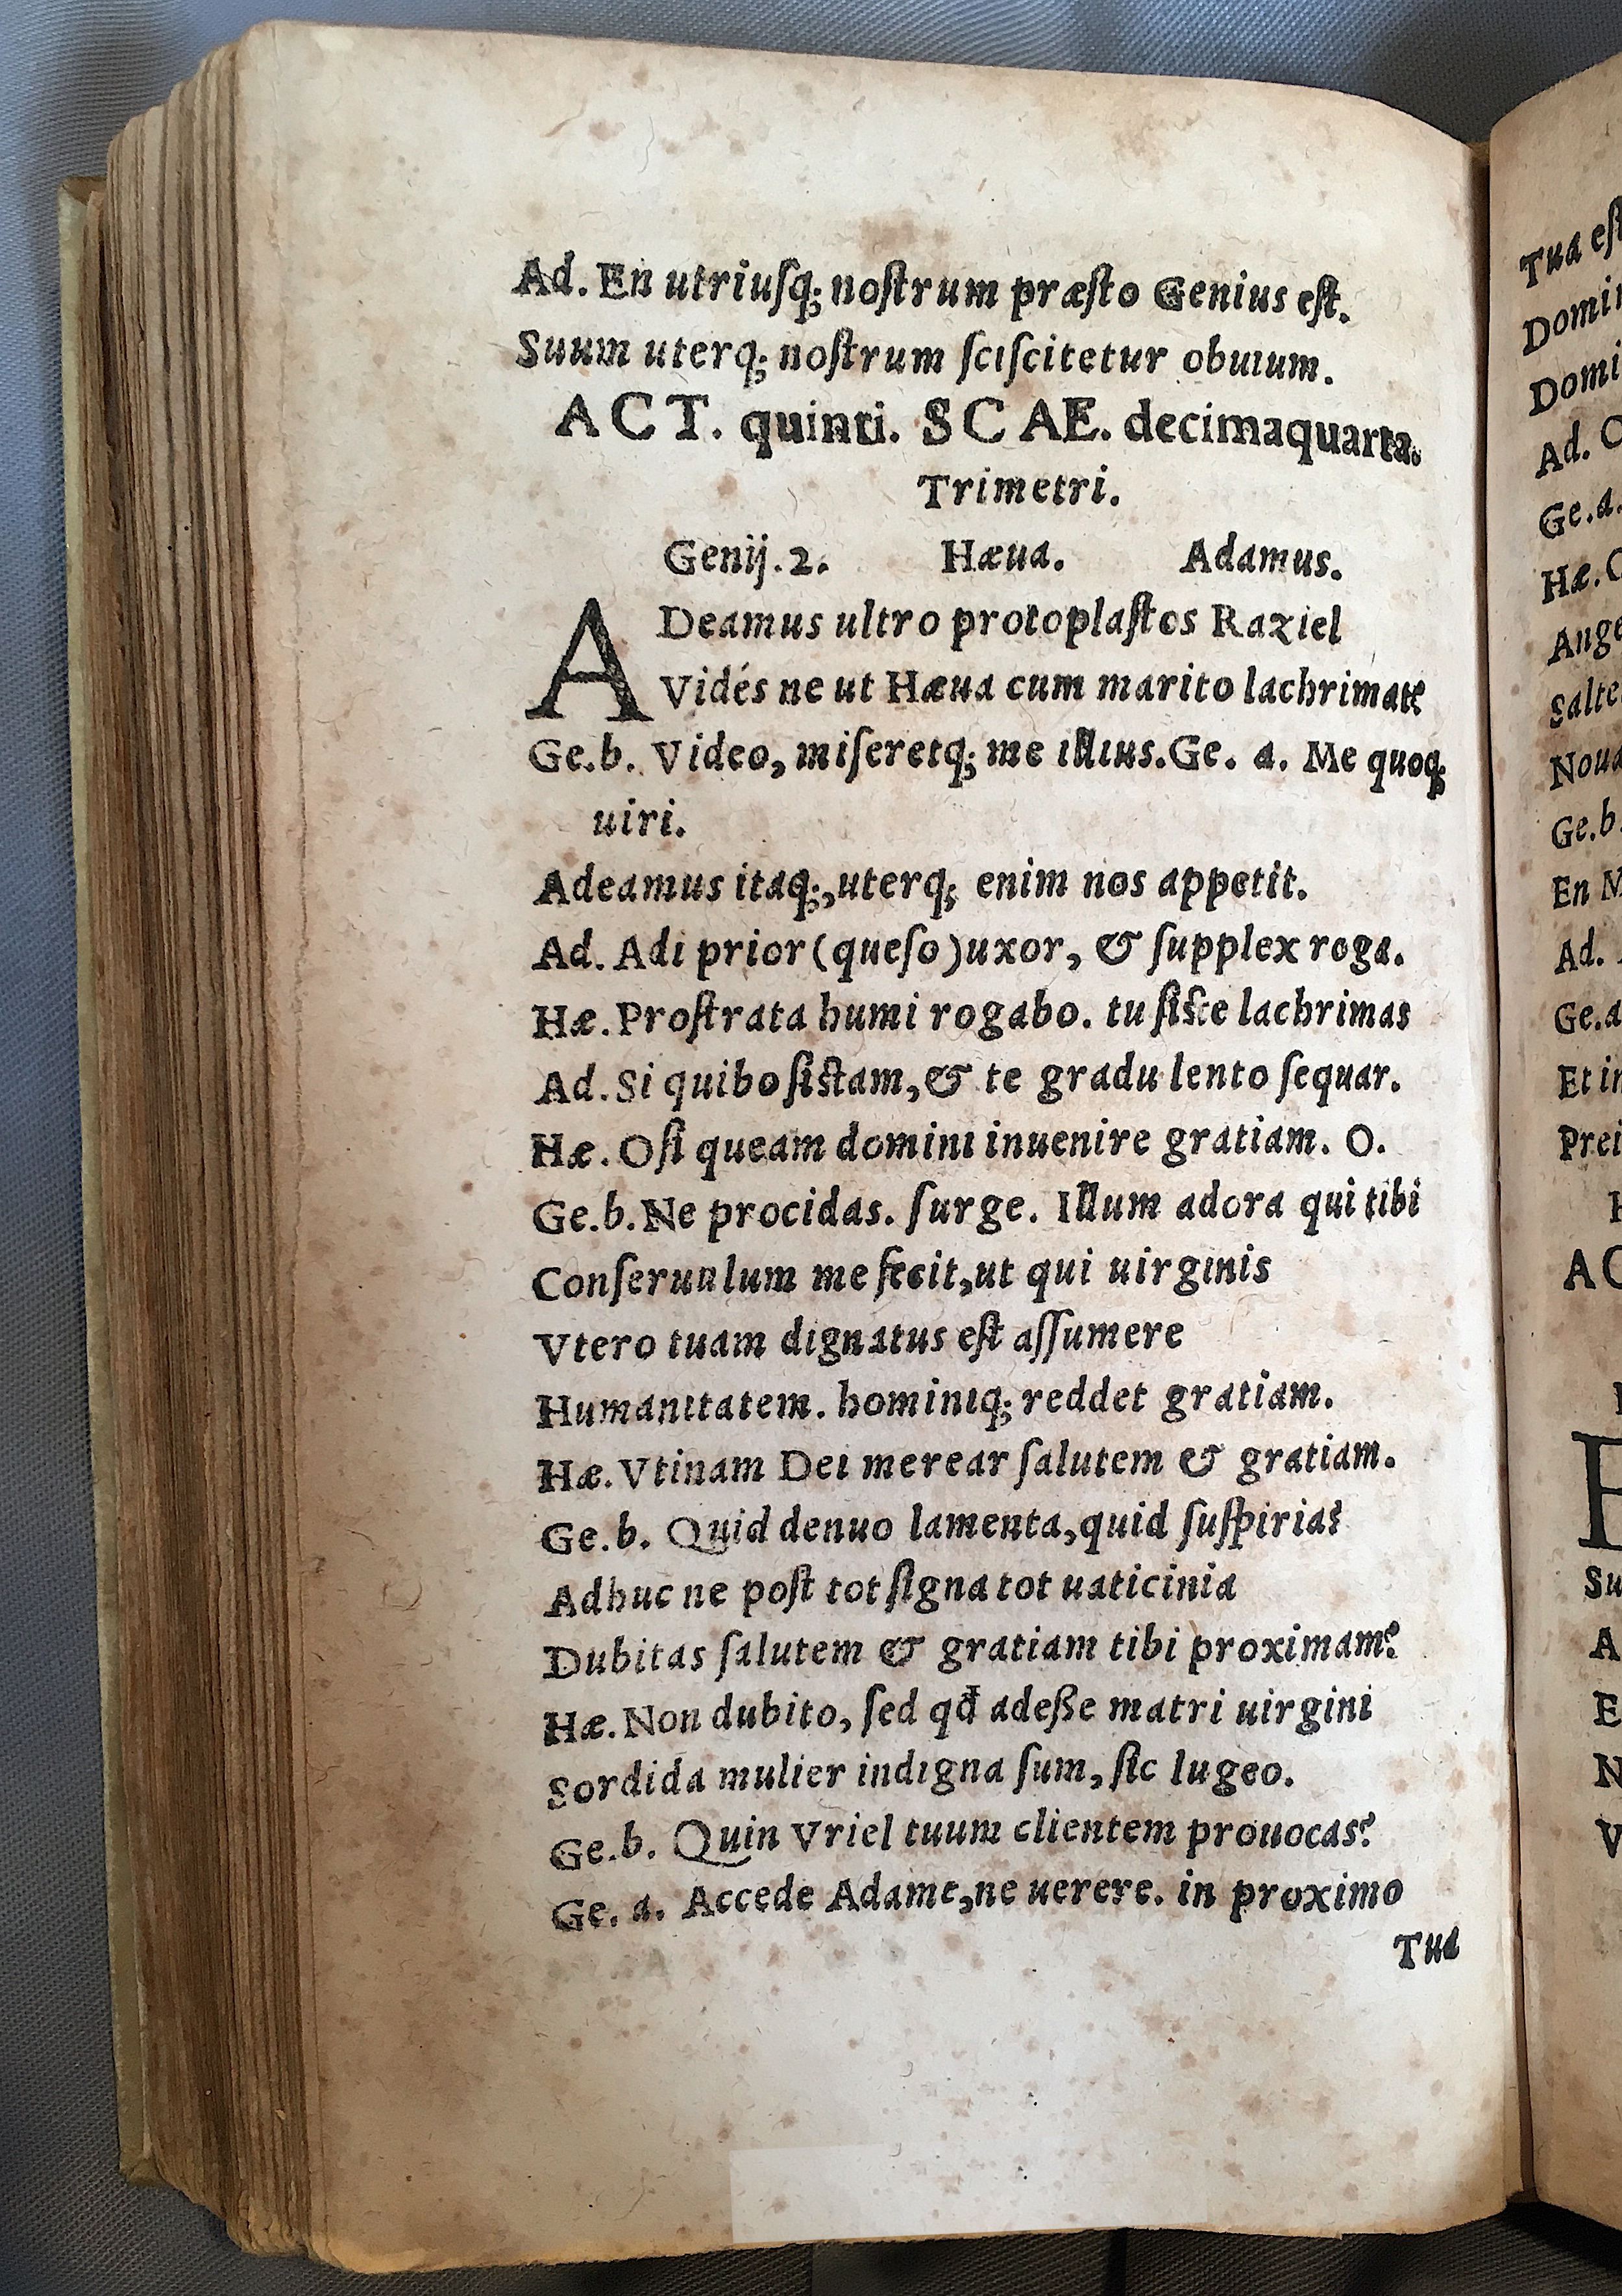 Ad. En utriuſq; noſtrum præſto Genius eſt.
Suum uterq; noſtrum ſciſcitetur obuium.
ACT. quinti. SCAE. decimaquarta.
Trimetri.
Genij.2. Hæua. Adamus.
ADeamus ultro protoplaſtos Raziel
Vidés ne ut Hæua cum marito lachrimate
Ge.b. Video, miſeretq; me illius. Ge. a. Me quoq;
uiri.
Adeamus itaq;, uterq; enim nos appetit.
Ad. Adi prior (queſo) uxor, & ſupplex roga.
Hæ. Proſtrata humi rogabo. tu ſiſte lachrimas
Ad. Si quibo ſiſtam, & te gradu lento ſequar.
Hæ. O ſi queam domini inuenire gratiam. O.
Ge.b. Ne procidas. ſurge. Illum adora qui tibi
Conſeruulum me fecit, ut qui uirginis
Vtero tuam dignatus eſt aſſumere
Humanitatem. hominiq; reddet gratiam.
Hæ. Vtinam Dei merear ſalutem & gratiam.
Ge.b. Quid denuo lamenta, quid ſuſpirias?
Adhuc ne poſt tot ſigna tot uaticinia
Dubitas ſalutem & gratiam tibi proximam?
Hæ. Non dubito, ſed qđ adeße matri uirgini
Sordida mulier indigna ſum, ſic lugeo.
Ge.b. Quin Vriel tuum clientem prouocas?
Ge. a. Accede Adame, ne uerere. in proximo
Tua
Tua
Ad.
Ge.a.
Hæ.
Ge.b.
En
Ad.